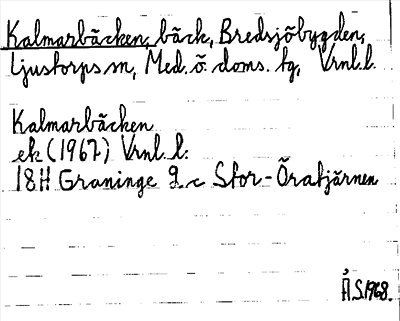 Kalmarbäcken, bäck, Bredsjöbygden,
Ljustorps sn, Med. ö. doms. tg, Vrnl. l.
Kalmarbäcken
ek (1967) Vrnl. l.
18H Graninge 9 c Stor-Öratjärnen
Å.S. 1968.